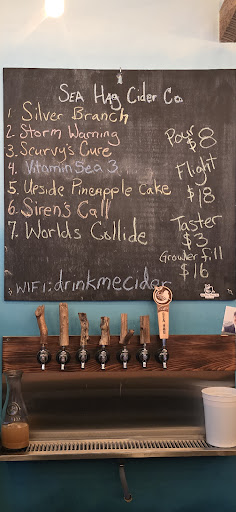 Sea Hag Cider Co.
1. Silver Branch
2 Storm Warning
3. Scurvy's Cure
4. Vitamin Sea 3
5. Upside Pineapple Cake
6. Siren's Call
7. Worlds Collide
Pour
$8
Flight
$18
Taster
$3
Growler fill
$16
WIFI: drinkmecider